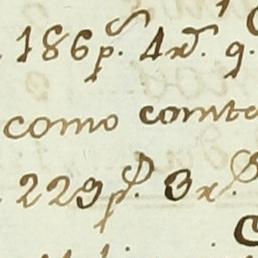 186 p.s 4 r.s q.
como comta
229 p.s 3 r.s